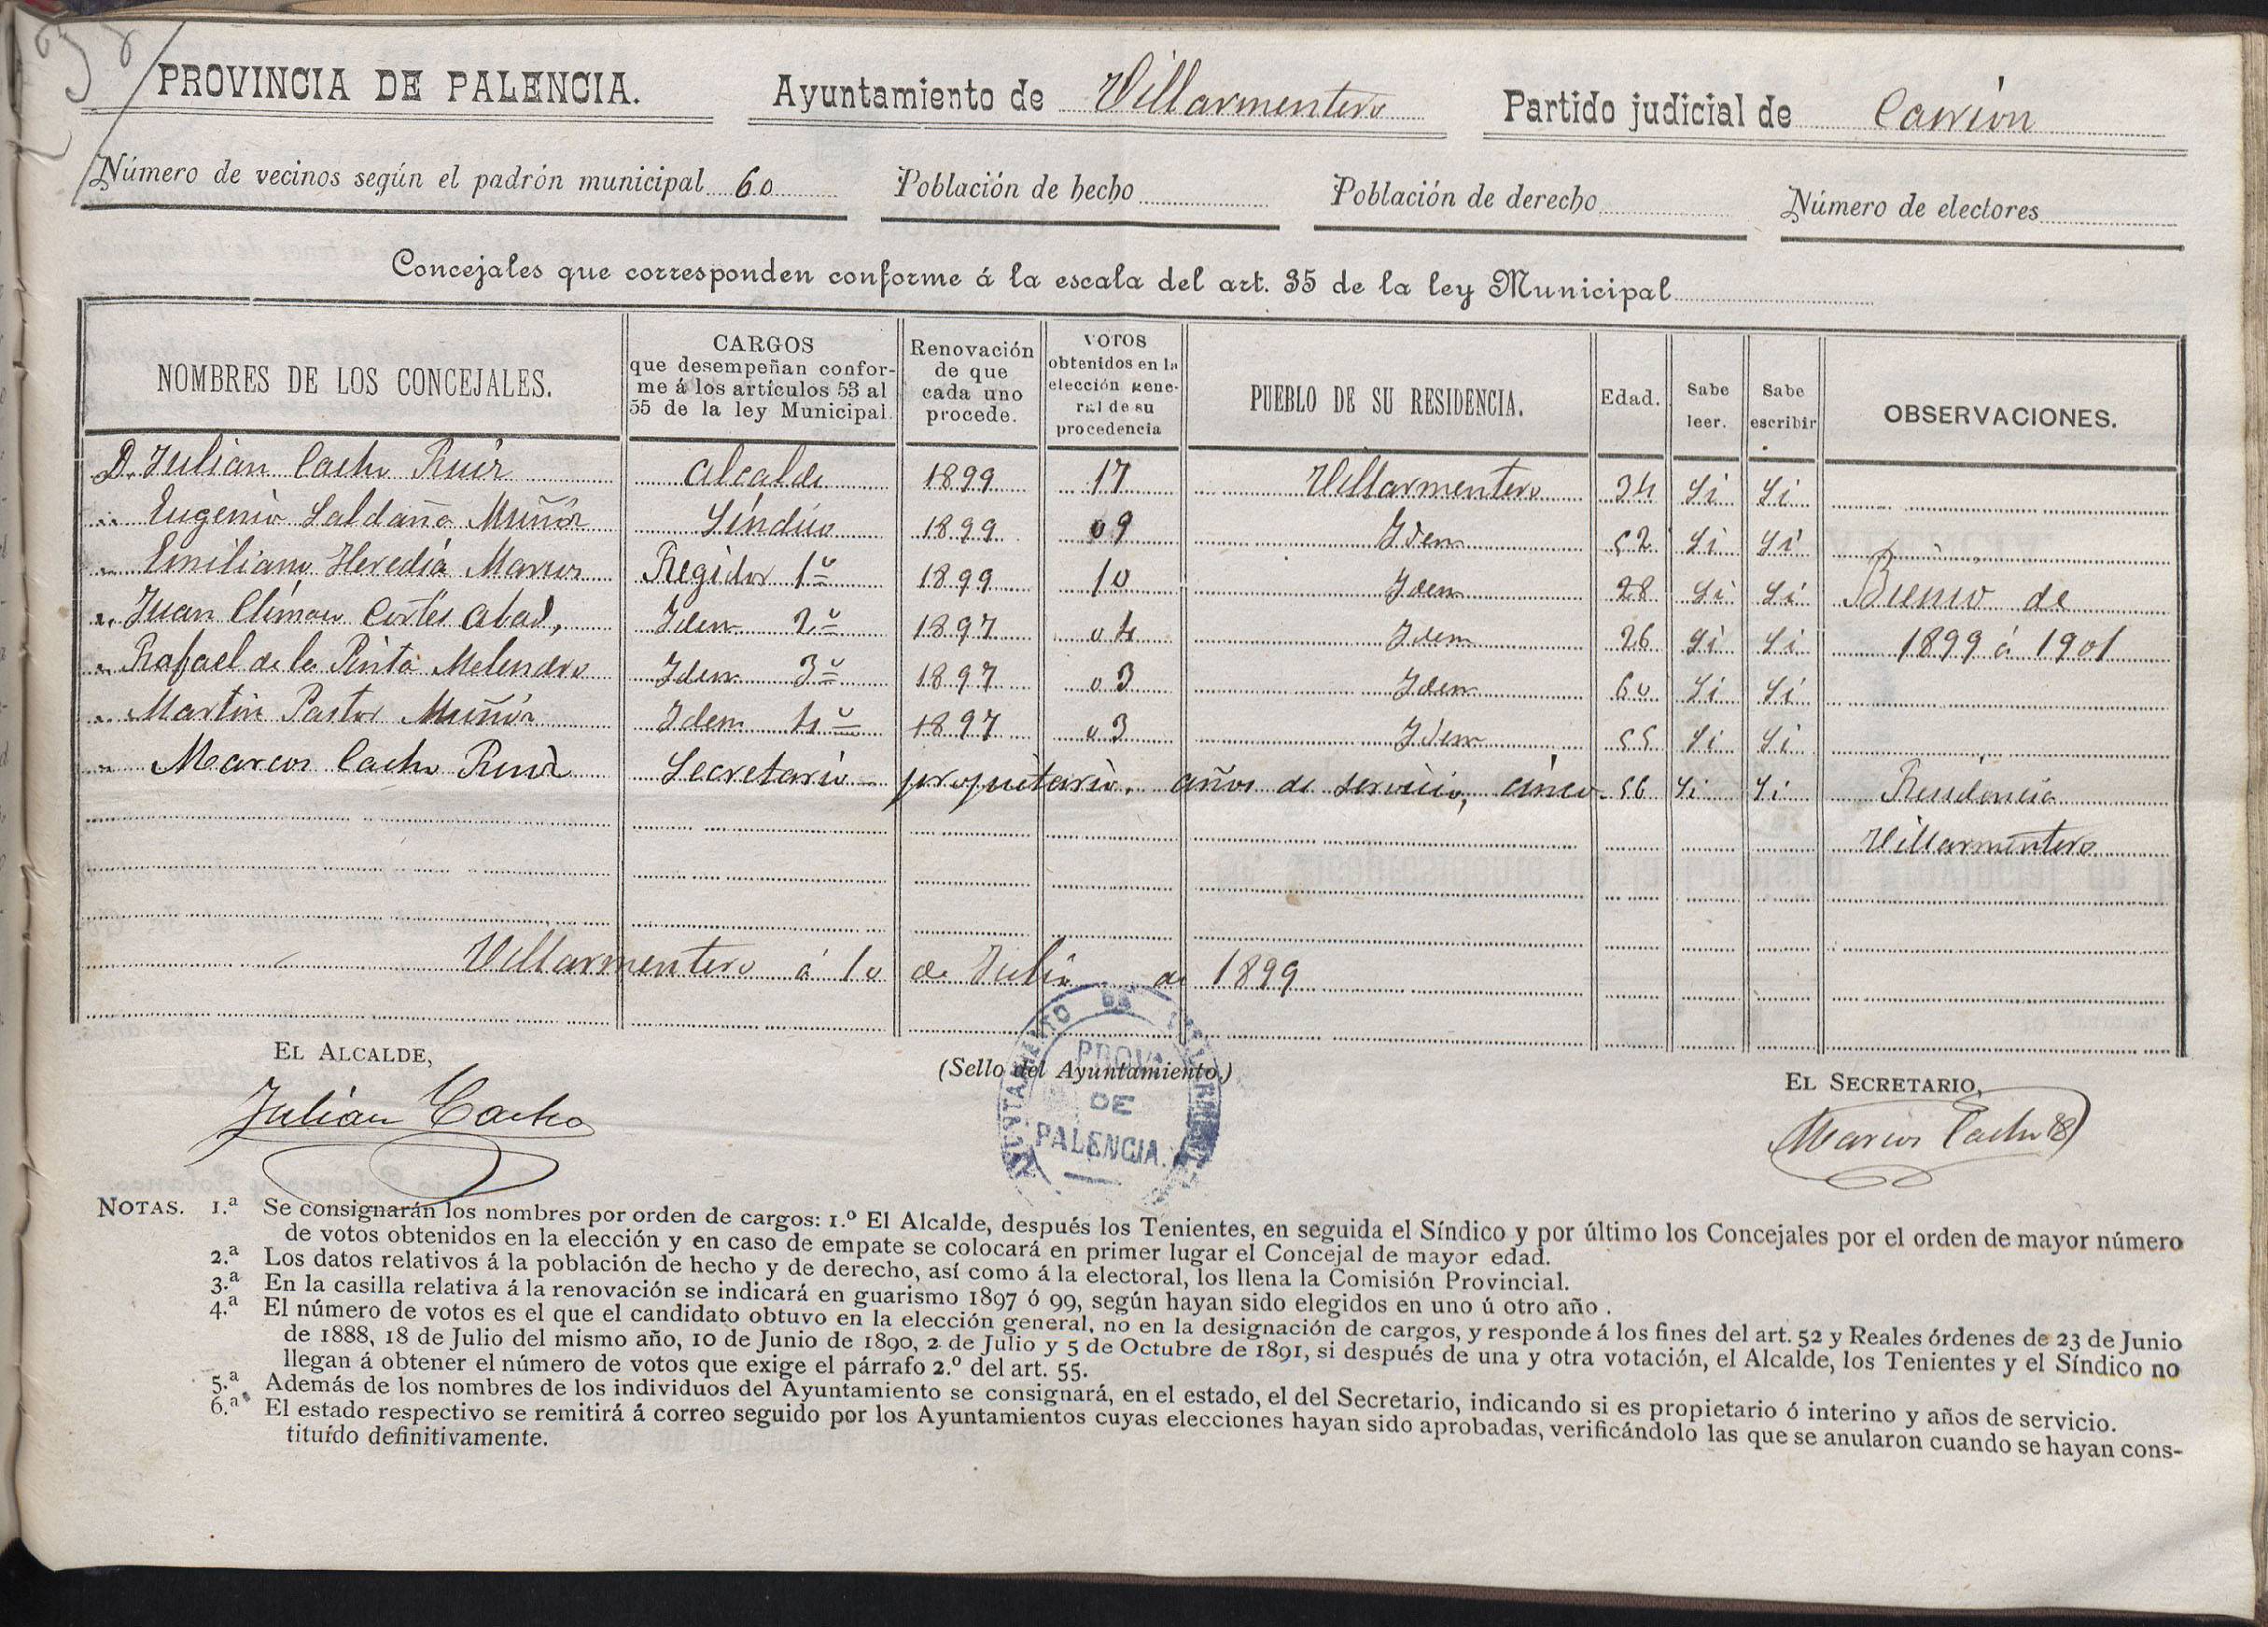 PROVINCIA DE PALENCIA. Ayuntamiento de Villarmentero Partido judicial de Carrión
Número de vecinos según el padrón municipal 60 Población de hecho Población de derecho Número de electores
Concejales que corresponden conforme á la escala del art. 35 de la ley Municipal
NOMBRES DE LOS CONCEJALES. CARGOS que desempeñan conforme á los artículos 53 al 55 de la ley Municipal. Renovación de que cada uno procede. VOTOS obtenidos en la elección general de su procedencia PUEBLO DE SU RESIDENCIA. Edad. Sabe leer. Sabe escribir OBSERVACIONES.
D. Julián Cacho Ruiz Alcalde 1899 17 Villarmentero 34 Si Si
" Eugenio Saldaña Muñóz Síndico 1899 09 Idem 52 Si Si
" Emiliano Heredia Marcos Regidor 1º 1899 10 Idem 28 Si Si Bienio de
" Juan Clímaco Cortés Abad, Idem 2º 1897 04 Idem 26 Si Si 1899 á 1901
" Rafael de la Pinta Melendro Idem 3º 1897 03 Idem 60 Si Si
" Martín Pastor Muñóz Idem 4º 1897 03 Idem 55 Si Si
" Marcos Cacho Ruiz Secretario propietario, años de servicio, cinco 56 Si Si Residencia
Villarmentero
Villarmentero á 10 de Julio de 1899
EL ALCALDE,
Julián Cacho
(Sello del Ayuntamiento.)
AYUNTAMIENTO DE
PROVª
DE
PALENCIA.
EL SECRETARIO,
Marcos Cacho
NOTAS. 1.ª Se consignarán los nombres por orden de cargos: 1.º El Alcalde, después los Tenientes, en seguida el Síndico y por último los Concejales por el orden de mayor número
de votos obtenidos en la elección y en caso de empate se colocará en primer lugar el Concejal de mayor edad.
2.ª Los datos relativos á la población de hecho y de derecho, así como á la electoral, los llena la Comisión Provincial.
3.ª En la casilla relativa á la renovación se indicará en guarismo 1897 ó 99, según hayan sido elegidos en uno ú otro año .
4.ª El número de votos es el que el candidato obtuvo en la elección general, no en la designación de cargos, y responde á los fines del art. 52 y Reales órdenes de 23 de Junio
de 1888, 18 de Julio del mismo año, 10 de Junio de 1890, 2 de Julio y 5 de Octubre de 1891, si después de una y otra votación, el Alcalde, los Tenientes y el Síndico no
llegan á obtener el número de votos que exige el párrafo 2.º del art. 55.
5.ª Además de los nombres de los individuos del Ayuntamiento se consignará, en el estado, el del Secretario, indicando si es propietario ó interino y años de servicio.
6.ª El estado respectivo se remitirá á correo seguido por los Ayuntamientos cuyas elecciones hayan sido aprobadas, verificándolo las que se anularon cuando se hayan cons-
tituído definitivamente.